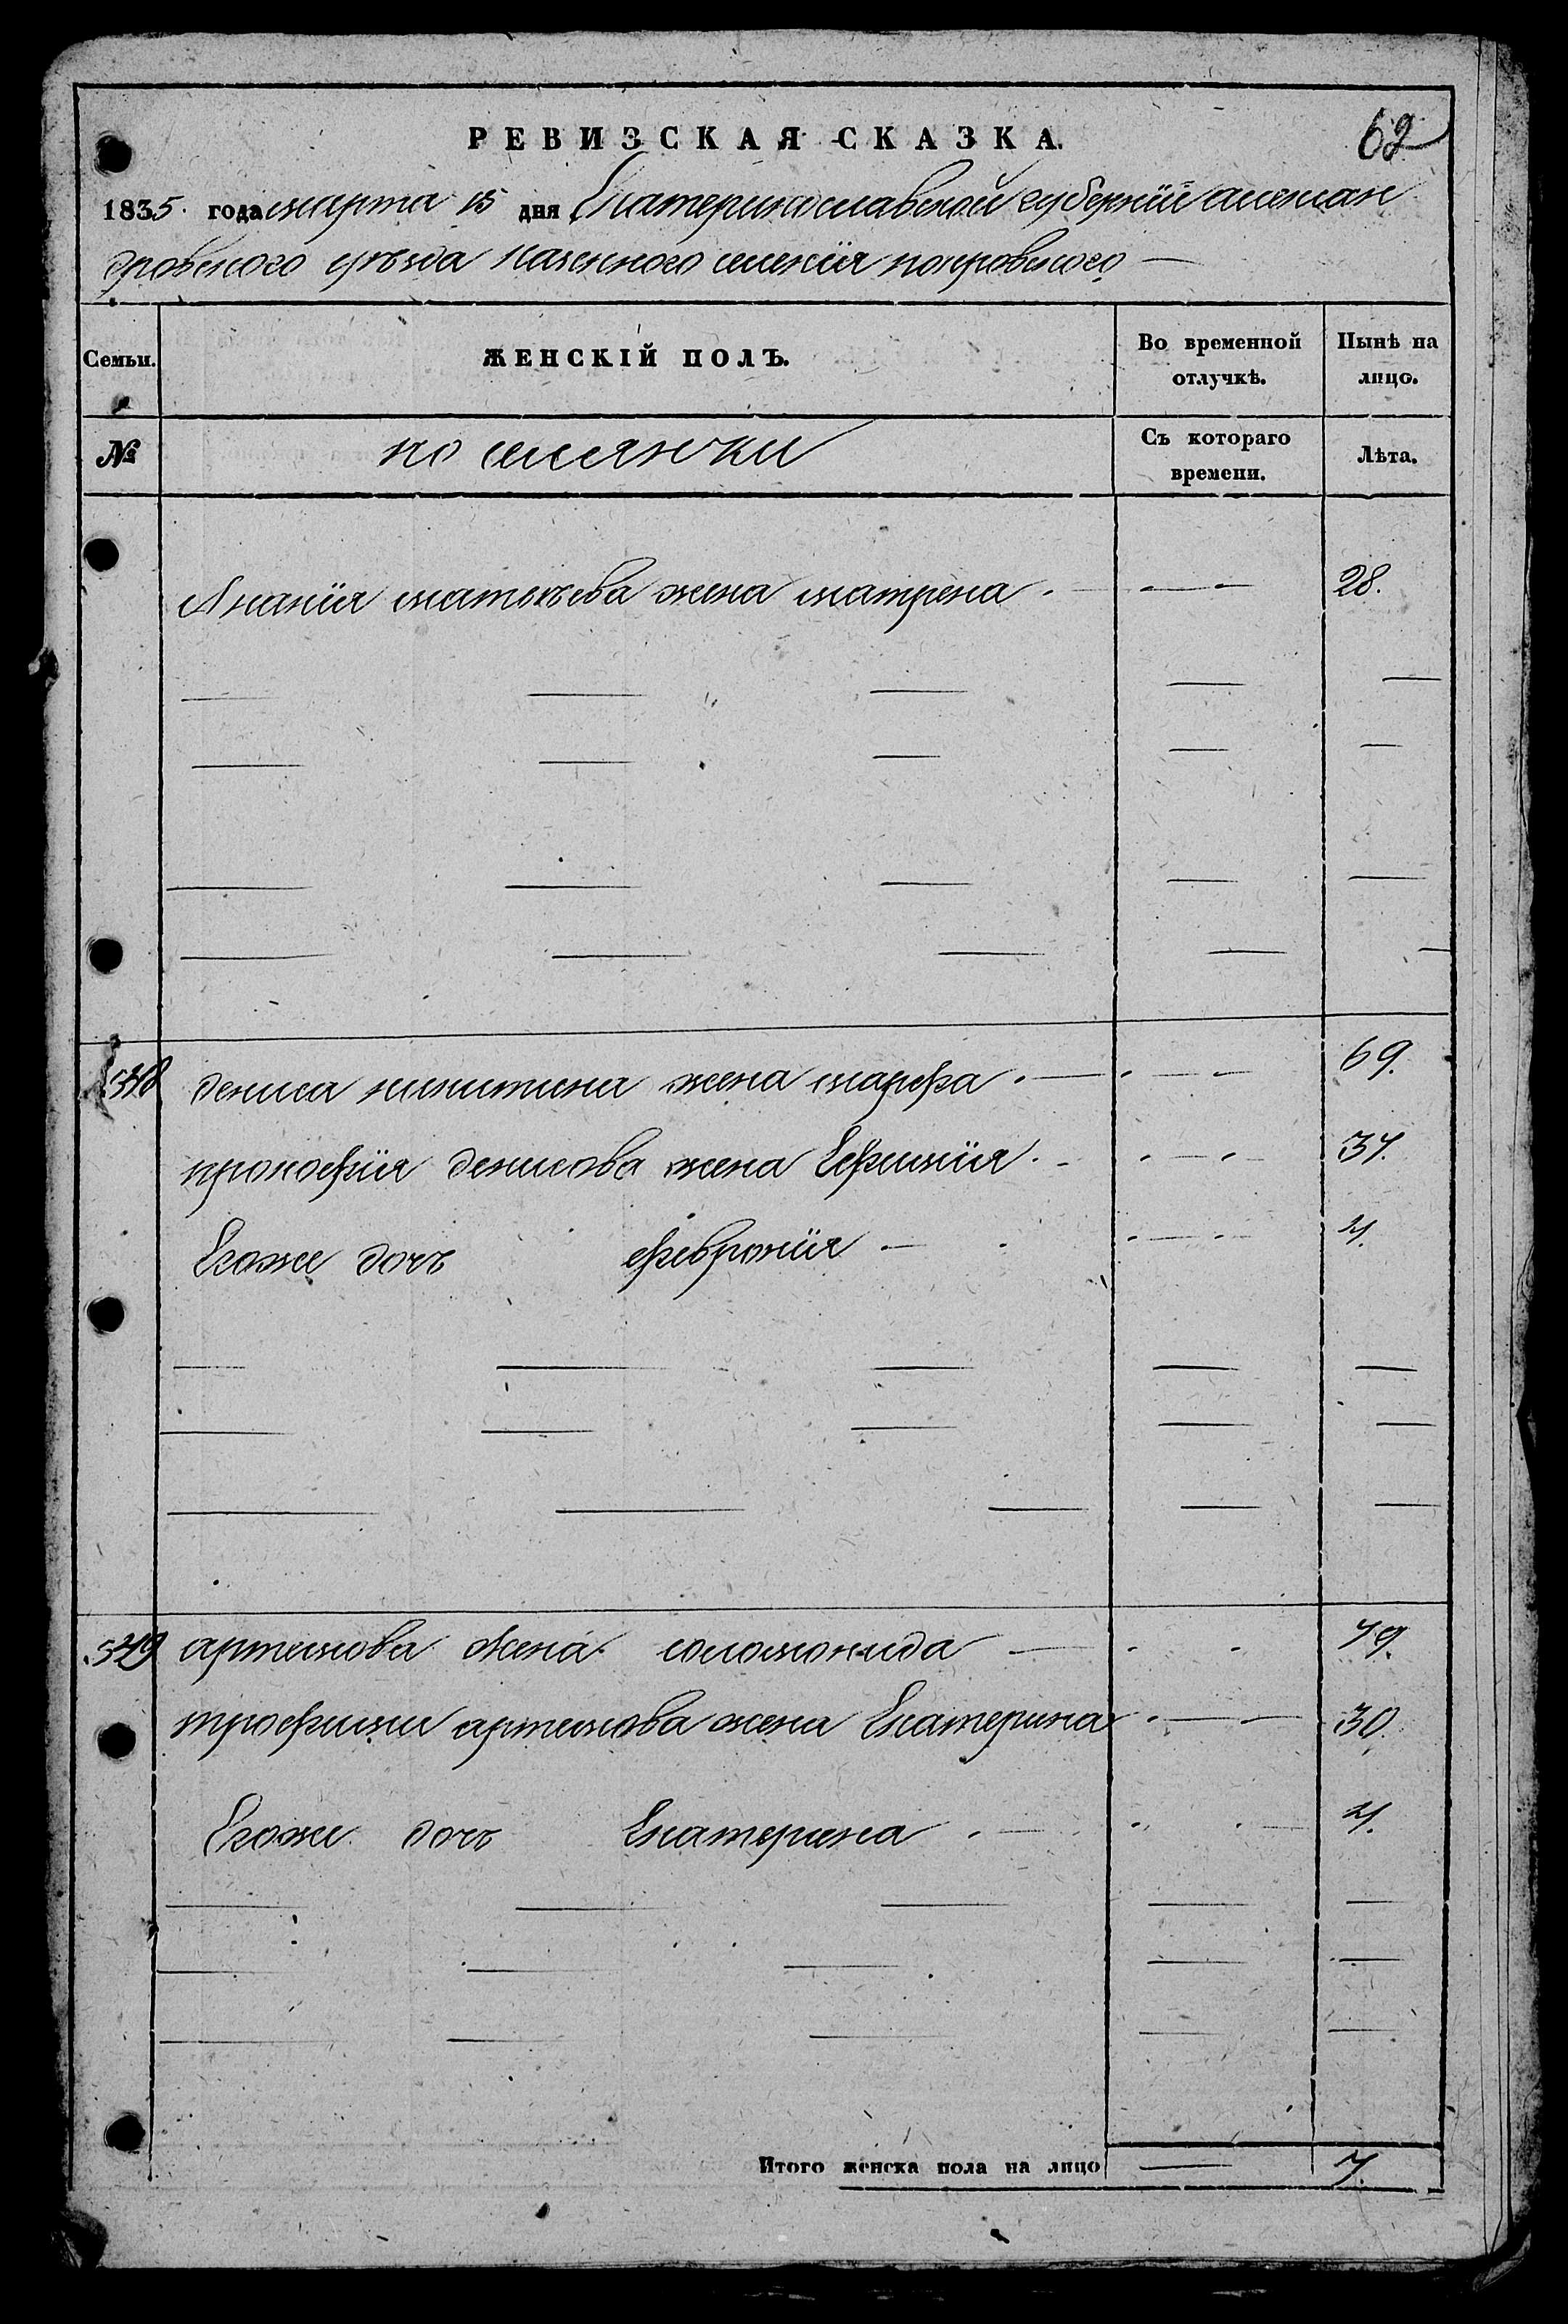 РЕВИЗСКАЯ СКАЗКА.
62
1835. года марта 15 дня Екатеринославской губернiи алексан
дровского уѣзда казенного селенiя покровского
Семьи.
ЖЕНСКIЙ ПОЛЪ.
Во временной отлучкѣ.
Нынѣ на лицо.
№
поселянки
Съ котораго времени.
Лѣта.
Ананiя матвѣева жена матрена 28.
348 дениса никитина жена марфа 69.
прокофiя денисова жена Ефимiя 37.
Егоже дочь феврониiя 4.
349 артемова жена соломонида 79.
трофима артемова жена Екатерина 30.
Егоже дочь Екатерина 4.
Итого женска пола на лицо 7.